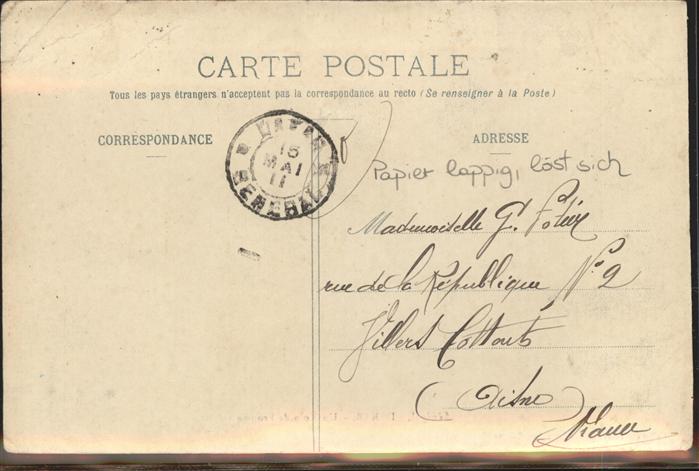 CARTE POSTALE
Tous les pays étrangers n'acceptent pas la correspondance au recto (Se renseigner à la Poste)
CORRESPONDANCE
ADRESSE
15
MAI
11
Papier lappig, löst sich
Mademoiselle G.
rue de la République N° 2
Villers Cotterets
(Aisne)
France